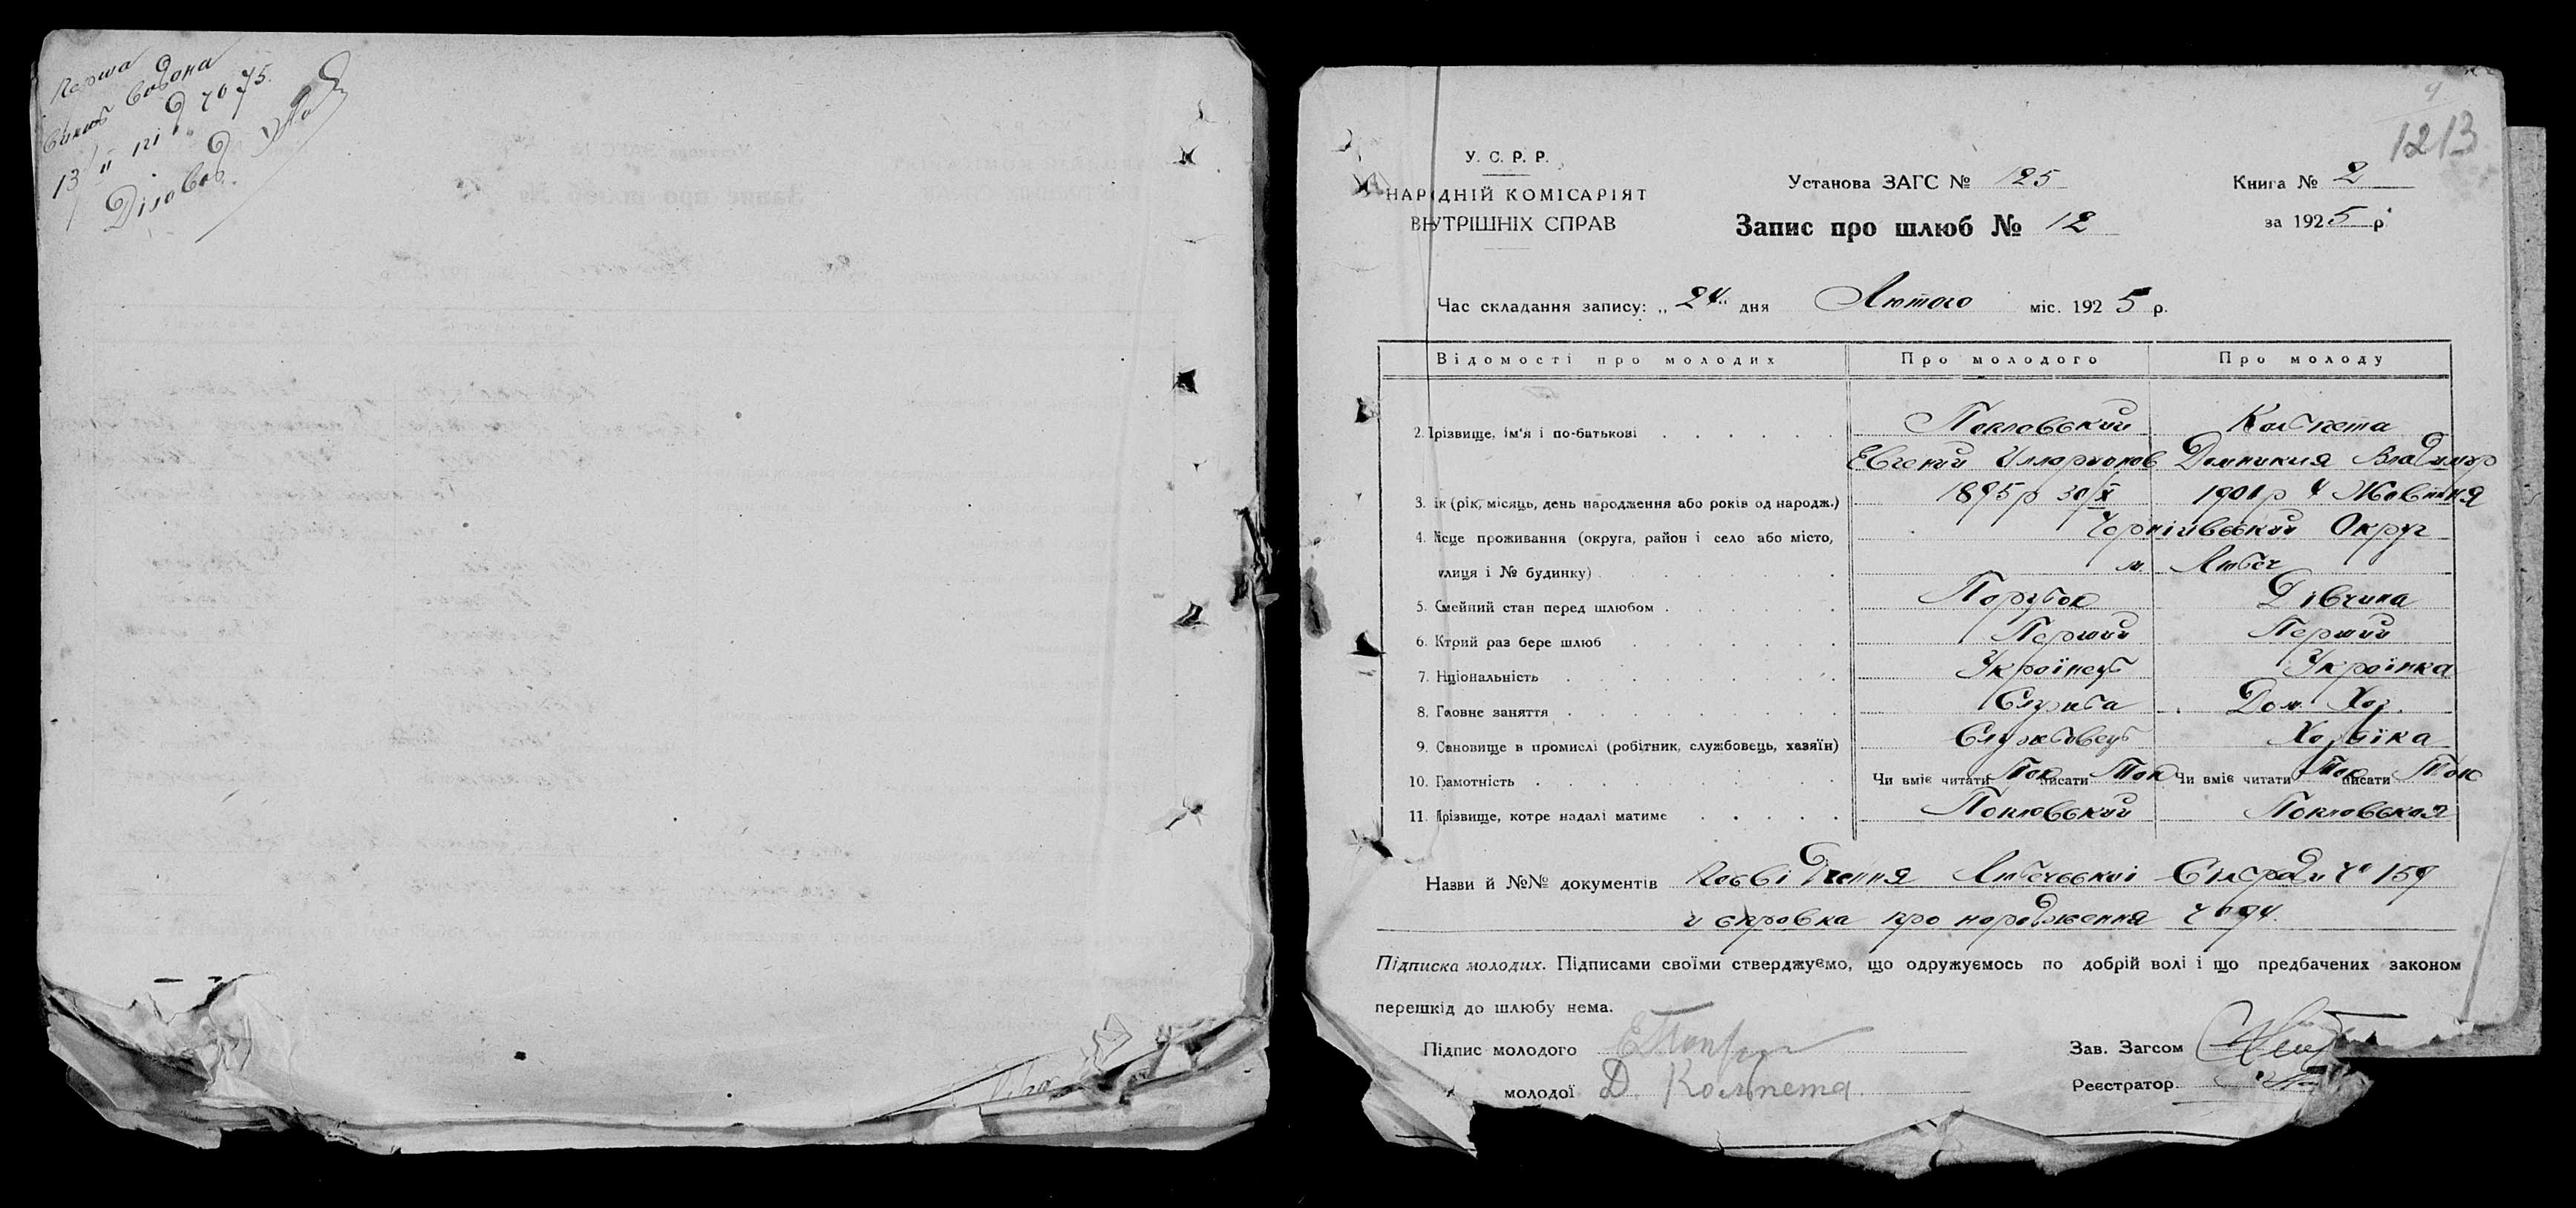 Перша
видана
13/II під № 75.
Діловод
9
12 13
У. С. Р. Р.
НАРОДНІЙ КОМІСАРІЯТ
ВНУТРІШНІХ СПРАВ
Установа ЗАГС № 125
Книга № 2
Запис про шлюб № 12
за 1925 р
Час складання запису: „ 24 " дня Лютого міс. 1925 р.
Відомості про молодих Про молодого Про молоду
2. Прізвище, ім'я і по-батькові Кольпета
Евгений Илларионов Домникия Владимир
3. ік (рік, місяць, день народження або років од народж.) 1895 р 30/X 1901 р 4 Жовтня
4. ісце проживання (округа, район і село або місто, Чернігівський Округ
улиця і № будинку) м Любеч
5. Смейний стан перед шлюбом Парубок Дівчина
6. Ктрий раз бере шлюб Перший Перший
7. Нціональність Українець Українка
8. Гловне заняття Служба Дом. Хоз.
9. Сановище в промислі (робітник, службовець, хазяїн) Службовець Хозяїка
10. Грамотність Чи вміє читати Так писати Так Чи вміє читати Так писати Так
11. Прізвище, котре надалі матиме
Назви й №№ документів Посвідчення Любечської Сільради № 159
и справка про народження № 94.
Підписка молодих. Підписами своїми стверджуємо, що одружуємось по добрій волі і що предбачених законом
перешкід до шлюбу нема.
Підпис молодого
Зав. Загсом
молодої Д. Кольпета
Реєстратор